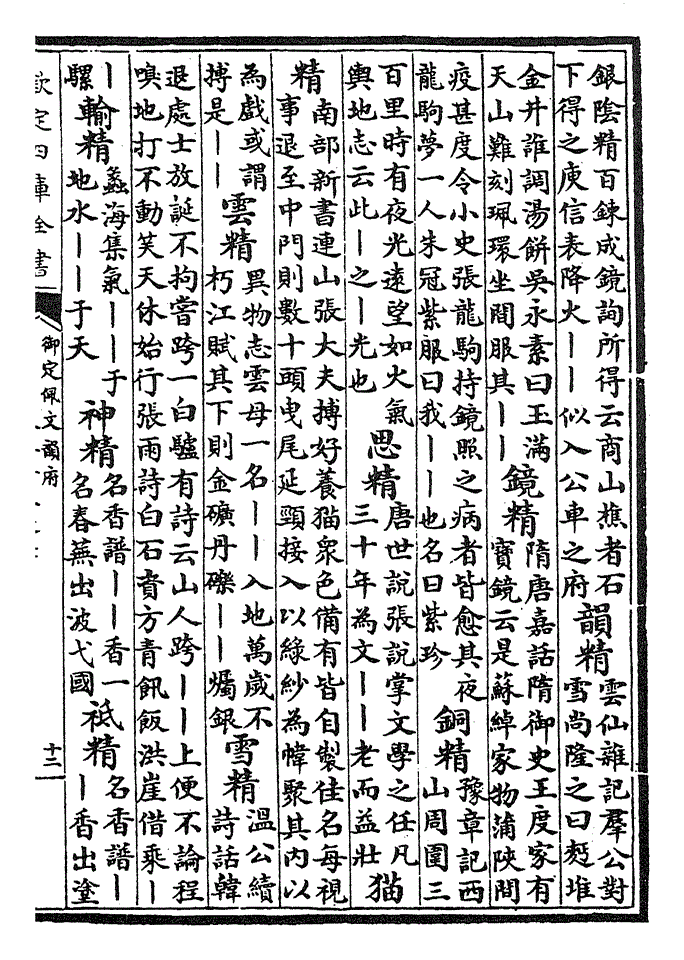 銀陰精百鍊成鏡詢所得云商山樵者石
下得之庾信表降火——似入公車之府
韻精
雲仙雜記羣公對
雪尚隆之曰麪堆
金井誰調湯餅吳永素曰玉滿
天山難刻珮環坐間服其——
鏡精
隋唐嘉話隋御史王度家有
寶鏡云是蘇綽家物蒲陝間
疫甚度令小史張龍駒持鏡照之病者皆愈其夜
龍駒夢一人朱冠紫服曰我——也名曰紫珍
銅精
豫章記西
山周圍三
百里時有夜光遠望如火氣
輿地志云此—之—光也
思精
唐世說張說掌文學之任凡
三十年為文——老而益壯
猫
精
南部新書連山張大夫搏好養猫衆色備有皆自製佳名每視
事退至中門則數十頭曳尾延頸接入以綠紗為幃聚其内以
為戲或謂
搏是——
雲精
異物志雲母一名——入地萬歲不
朽江賦其下則金礦丹礫——爥銀
雪精
溫公續
詩話韓
退處士放誕不拘嘗跨一白驢有詩云山人跨——上便不論程
嗅地打不動笑天休始行張雨詩白石賷方青飢飯洪崖借乘—
—
騾
輸精
蠡海集氣——于
地水——于天
神精
名香譜——香一
名春蕪出波弋國
祗精
名香譜—
—香出塗
欽定四庫全書
御定佩文韻府
十二